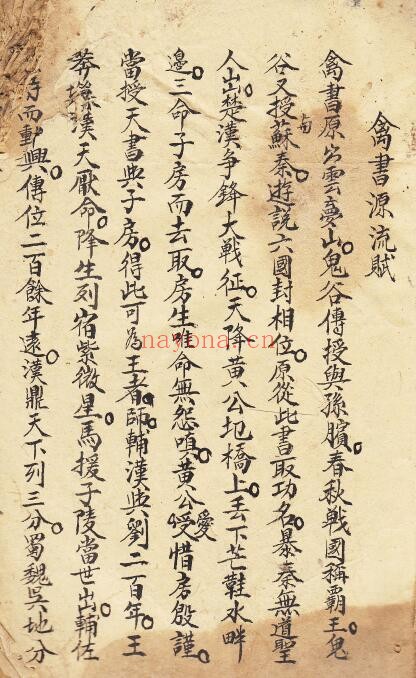 禽書源流賦
禽書原出雲夢山。鬼谷傳授與孫臏。春秋戰國稱霸王。鬼
谷又授与蘇秦。遊説六國封相位。原從此書取功名。暴秦無道聖
人出。楚漢爭鋒大戰征。天降黃公圯橋上。丟下芒鞋水畔
邊。三命子房而去取。房生唯命無怨咀。黃公受愛惜房殷謹。
當授天書與子房。得此可為王者師。輔漢興劉二百年。王
莽漢天厭命。降生列宿紫微星。馬援子陵當世出。輔佐
而動興。傳位二百餘年遠。漢鼎天下列三分。蜀魏吳地分
nayona.cn